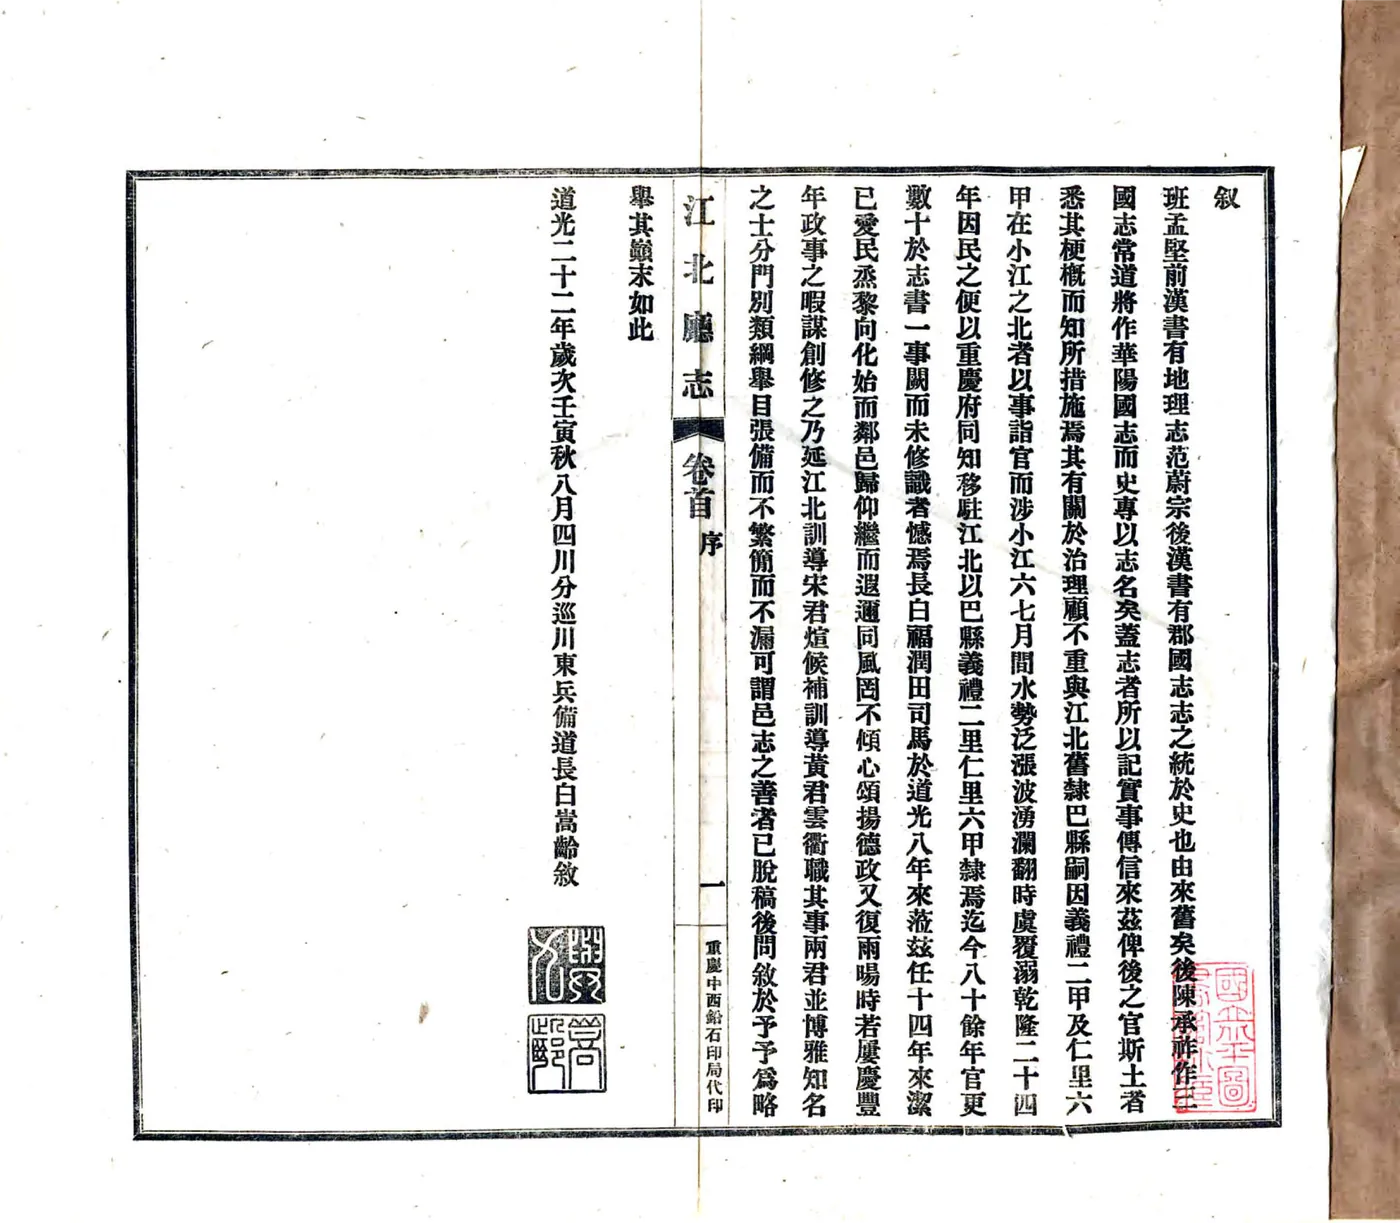 叙
班孟堅前漢書有地理志范蔚宗後漢書有郡國志志之統於史也由來舊矣後陳承祚作三
國志常道將作華陽國志而史專以志名矣蓋志者所以記實事傳信來茲俾後之官斯土者
悉其梗概而知所措施焉其有關於治理顧不重與江北舊隸巴縣嗣因義禮二甲及仁里六
甲在小江之北者以事詣官而涉小江六七月間水勢泛漲波湧瀾翻時虞覆溺乾隆二十四
年因民之便以重慶府同知移駐江北以巴縣義禮二里仁里六甲隸焉迄今八十餘年官更
數十於志書一事闕而未修識者憾焉長白福潤田司馬於道光八年來蒞茲任十四年來潔
已愛民烝黎向化始而鄰邑歸仰繼而遐邇同風罔不傾心頌揚德政又復雨暘時若屢慶豐
年政事之暇謀創修之乃延江北訓導宋君煊候補訓導黃君雲衢職其事兩君並博雅知名
之士分門別類綱舉目張備而不繁簡而不漏可謂邑志之善者已脫稿後問敘於予予爲略
江北廳志
卷首
序
一
重慶中西鉛石印局代印
舉其巔末如此
道光二十二年歲次壬寅秋八月四川分巡川東兵備道長白嵩齡敘